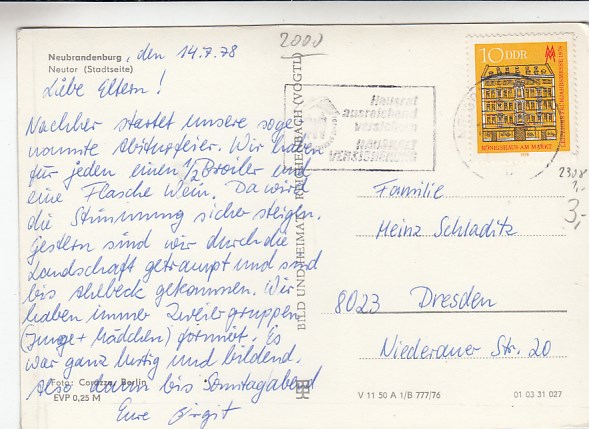 Neubrandenburg, den 14.7.78
Neutor (Stadtseite)
Liebe Eltern!
Nachher startet unsere soge-
nannte Abiturfeier. Wir haben
für jeden einen 1/2 Broiler und
eine Flasche Wein. Da wird
die Stimmung sicher steigen.
Gestern sind wir durch die
Landschaft getrampt und sind
bis Ahlbeck gekommen. Wir
haben immer Zweiergruppen
(Junge + Mädchen) formiert. Es
war ganz lustig und bildend.
Also dann bis Sonntagabend
Eure Birgit
Foto: Corazza, Berlin
EVP 0,25 M
BILD UND HEIMAT REICHENBACH (VOGTL)
2000
Hausrat
ausreichend
versichern
HAUSHALT
VERSICHERUNG
10 DDR
KÖNIGSHAUS AM MARKT
1978
2308
1,-
3,-
Familie
Heinz Schladitz
8023 Dresden
Niederauer Str. 20
V 11 50 A 1/B 777/76
01 03 31 027